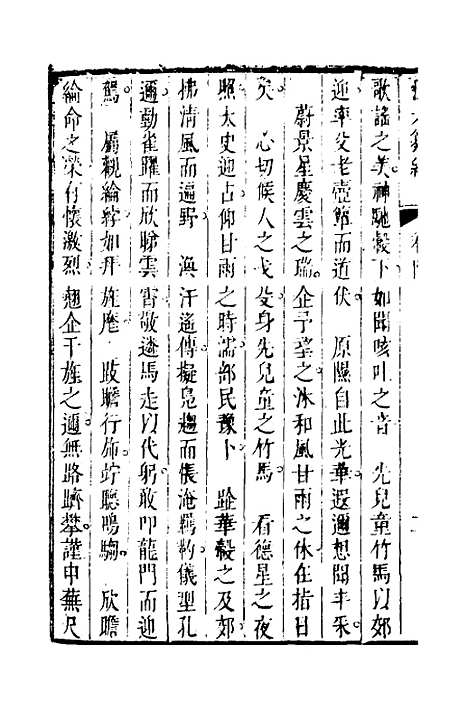 歌謠之美神馳轂下如聞咳吐之音　先兒童竹馬以郊
迎率父老壺簞而道伏　原隰自此光華遐邇想聞丰采
蔚景星慶雲之瑞企予望之沐和風甘雨之休在指日
矣　心切候人之戈殳身先兒童之竹馬　看德星之夜
照太史迎占仰甘雨之時濡部民豫卜　跂華轂之及郊
拂清風而遍野　渙汗遙傳擬鳧趨而悵淹羈靮儀型孔
邇勤雀躍而欣睇雲霄敬遴馬走以代躬敢叩龍門而迎
駕　屬觀綸綍如拜旌麾　跂瞻行斾竚聽鳴騶　欣瞻
綸命之榮有懷激烈　翹企干旌之邇無路躋攀謹申蕪尺